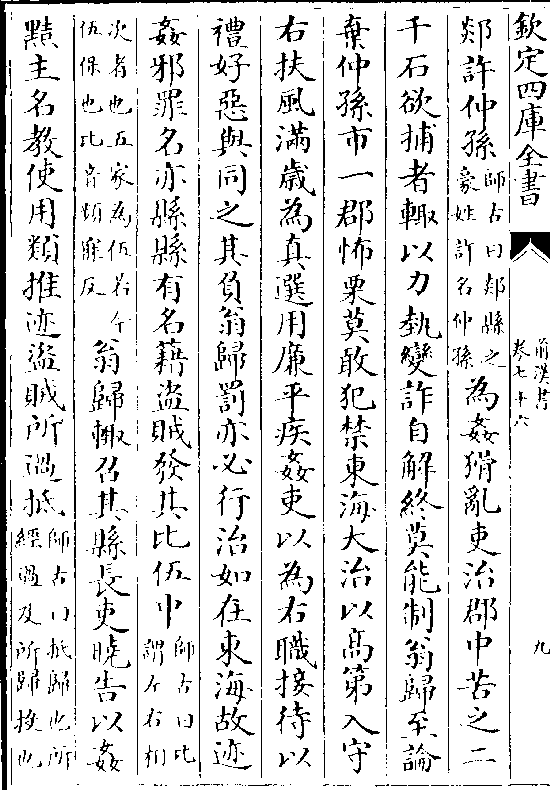 欽定四庫全書
前漢書
卷七十六
九
郯許仲孫師古曰郯縣之豪姓許名仲孫為姦猾亂吏治郡中苦之二
千石欲捕者輒以力執變詐自解終莫能制翁歸至論
棄仲孫市一郡怖栗莫敢犯禁東海大治以髙第入守
右扶風滿歲為真選用廉平疾姦吏以為右職接待以
禮好惡與同之其負翁歸罰亦必行治如在東海故迹
姦邪罪名亦縣縣有名籍盜賊發其比伍中師古曰比謂左右相
次者也五家為伍若今伍保也比音頻寐反翁歸輒召其縣長吏曉告以姦
黠主名教使用類推迹盜賊所過抵師古曰抵歸也所經過及所歸投也